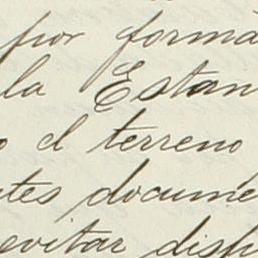 por formá
la Estan
o el terreno
tes docume
evitar disp